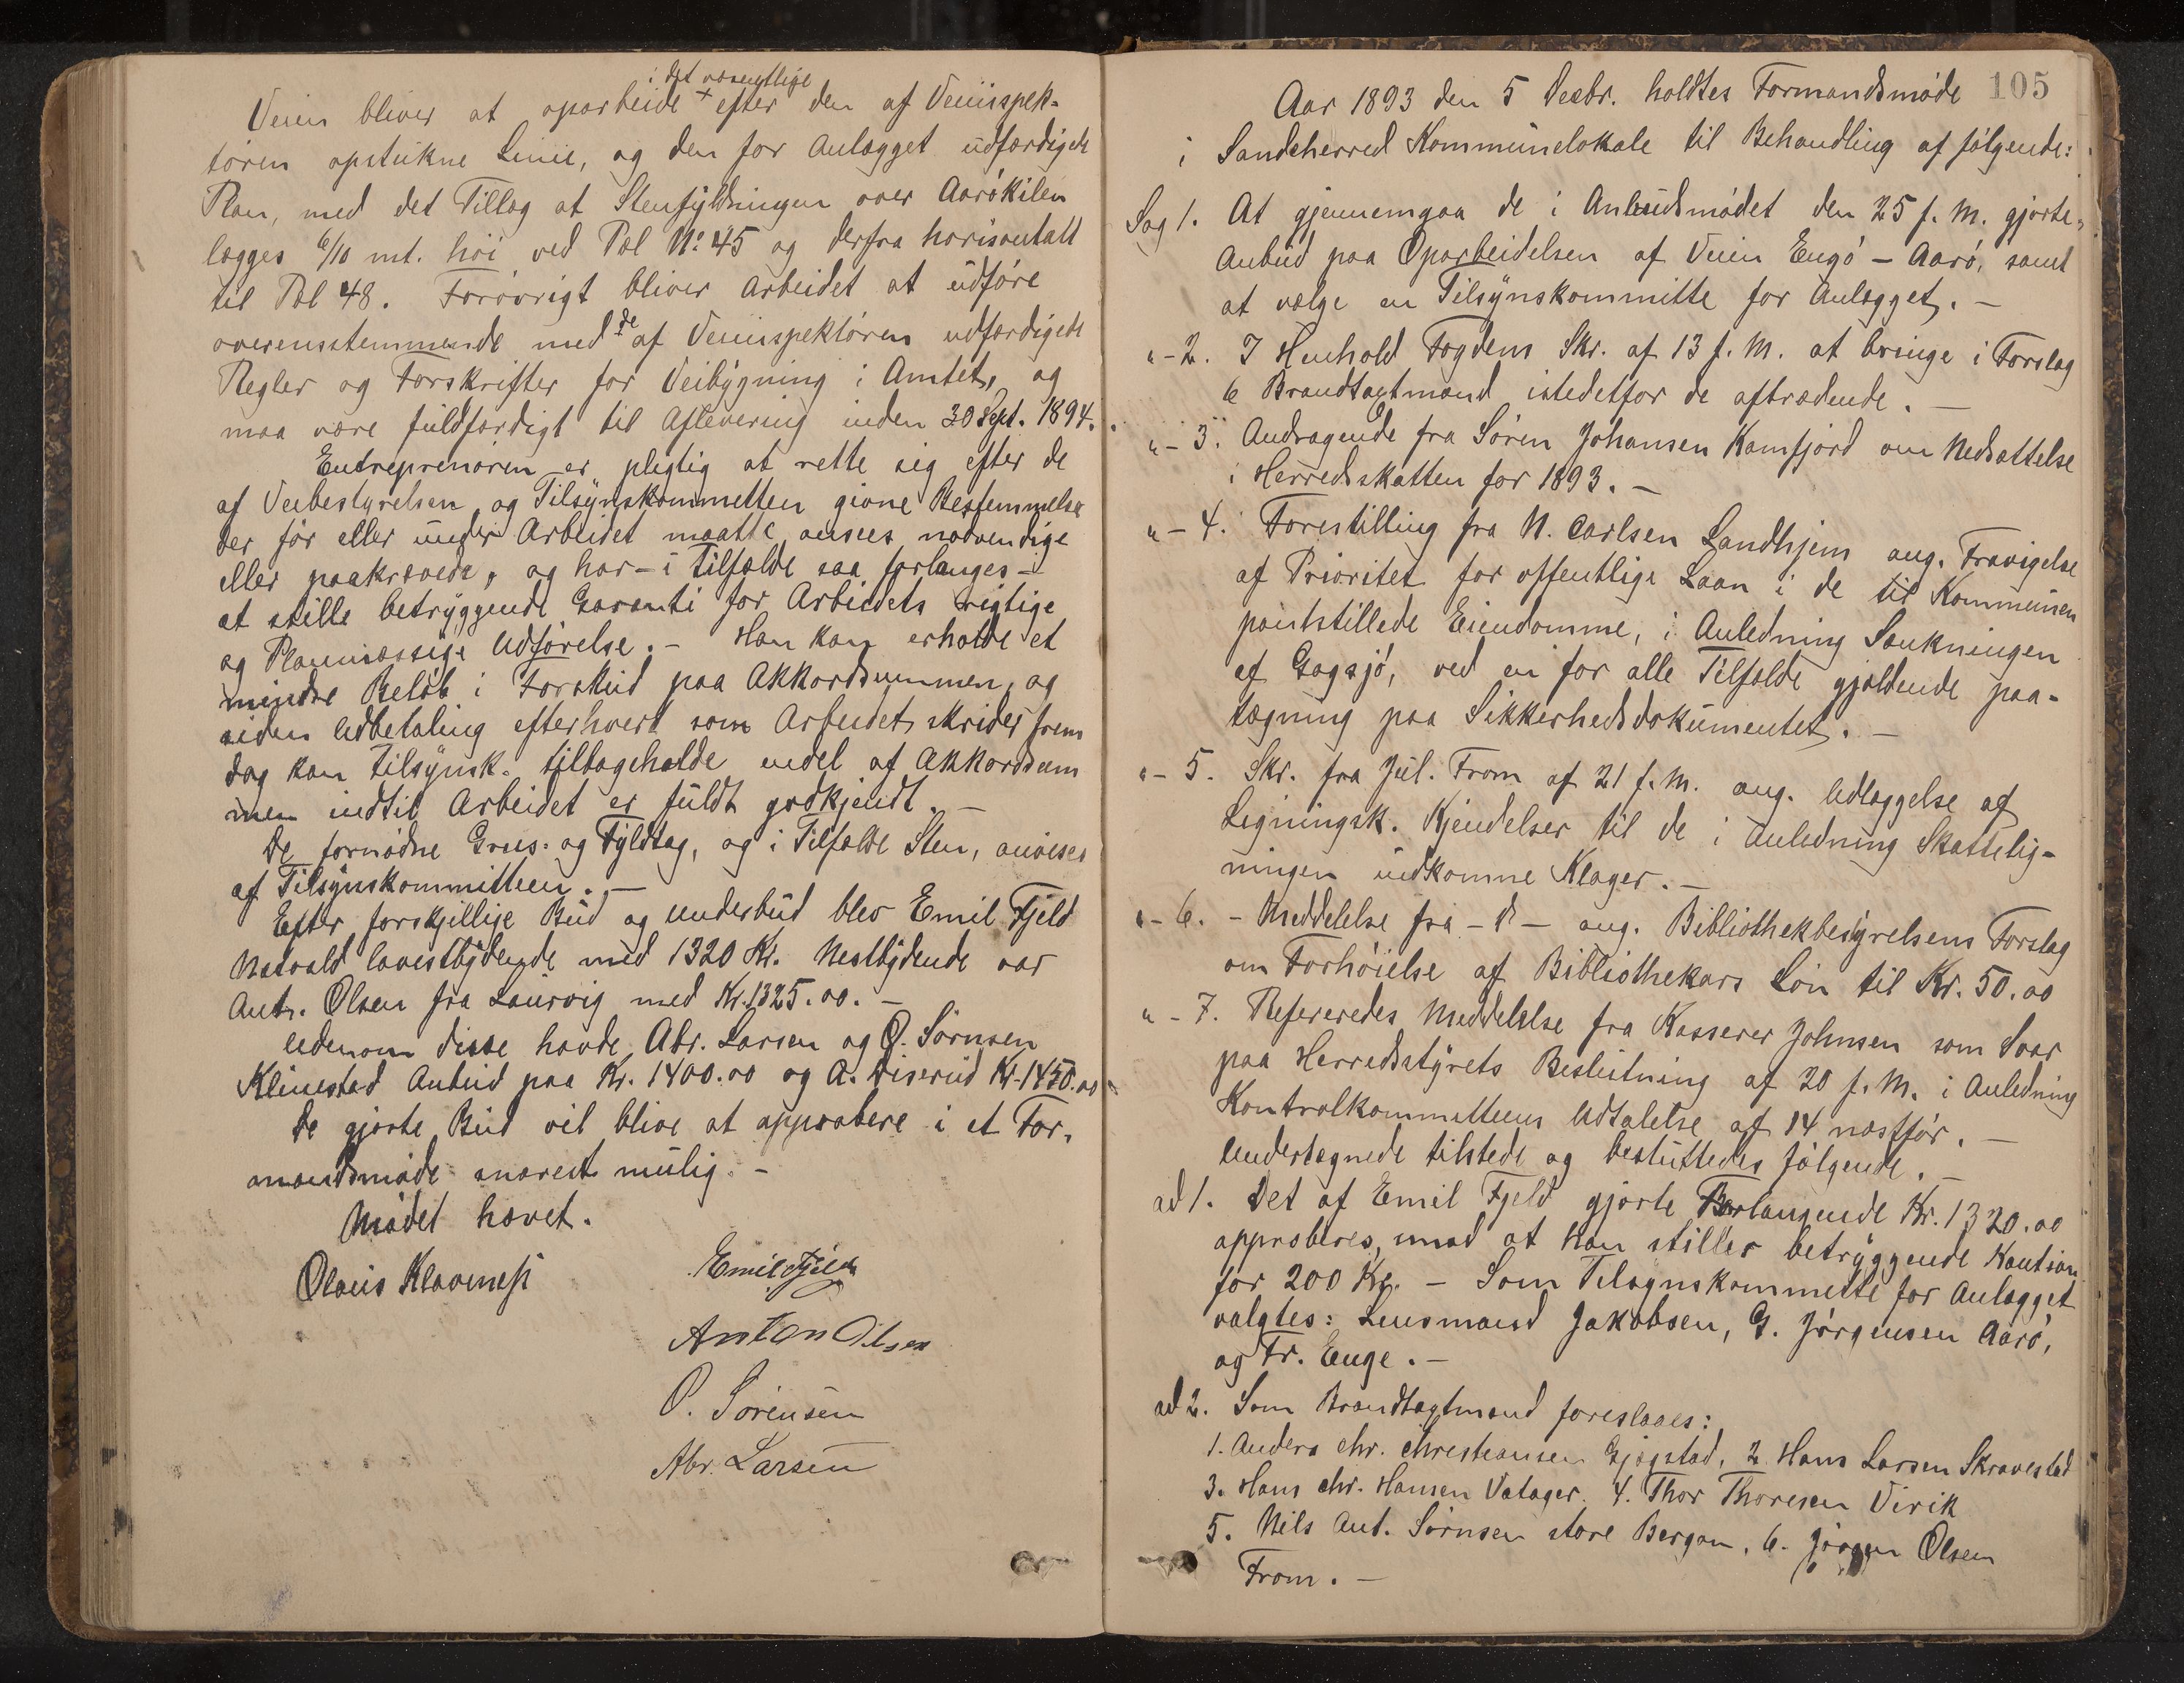 i det væsentlige
Veien bliver at oparbeide × efter den af Veiinspek-
tøren opstukne Linie, og den for Anlægget udfærdigede
Plan, med det Tillæg at Stenfyldningen over Aarøkilen
lægges 6/10 mt. høi ved Pæl No. 45 og derfra horisontalt
til Pæl 48. Forøvrigt bliver Arbeidet at udføre
overensstemmende med de af Veiinspektøren udfærdigede
Regler og Forskrifter for Veibygning i Amtet, og
maa være fuldfærdigt til Aflevering inden 30 Sept. 1894.
Entreprenøren er pligtig at rette sig efter de
af Veibestyrelsen og Tilsynskommitten givne Bestemmelser
der før eller under Arbeidet maatte ansees nødvendige
eller paakrævede, og har - i Tilfælde saa forlanges -
at stille betryggende Garanti for Arbeidets rigtige
og Planmæssige Udførelse. - Han kan erholde et
mindre Beløb i Forskud paa Akkordsummen, og
siden Udbetaling efterhvert som Arbeidet skrider frem
dog kan Tilsynsk. tilbageholde endel af Akkordsum
men indtil Arbeidet er fuldt godkjendt. -
De fornødne Grus- og Fyldtag, og i Tilfælde Sten, anvises
af Tilsynskommitteen. -
Efter forskjellige Bud og Underbud blev Emil Fjeld
lavestbydende med 1320 Kr. Nestbydende var
Ant. Olsen fra Laurvig med Kr. 1325.00. -
Udenom disse havde Abr. Larsen og O. Sørnsen
Klinestad Anbud paa Kr. 1400.00 og A. Diserud Kr. 1450.00
De gjorte Bud vil blive at approbere i et For-
mandsmøde snarest mulig. -
Mødet hævet.
Olaus Klaveness
Emil Fjeld
Anton Olsen
O. Sørensen
Abr. Larsen
105
Aar 1893 den 5 Decbr. holdtes Formandsmøde
i Sandeherred Kommunelokale til Behandling af følgende:
Sag 1. At gjennemgaa de i Anbudsmødet den 25 f. M. gjorte
Anbud paa Oparbeidelsen af Veien Engø - Aarø, samt
at vælge en Tilsynskommitte for Anlægget. -
" - 2. I Henhold Fogdens Skr. af 13 f. M. at bringe i Forslag
6 Brandtagtmænd istedetfor de aftrædende. -
" - 3. Andragende fra Søren Johansen Kamfjord om Nedsættelse
i Herredsskatten for 1893. -
" - 4. Forestilling fra N. Carlsen Landhjem ang. Fravigelse
af Prioritet for offentlige Laan i de til Kommunen
pantstillede Eiendomme, i Anledning Sænkningen
af Gogsjø, ved en for alle Tilfælde gjældende paa-
tegning paa Sikkerhedsdokumentet. -
" - 5. Skr. fra Jul. From af 21 f. M. ang. Udlæggelse af
Ligningsk. Kjendelser til de i Anledning Skattelig-
ningen indkomne Klager. -
" - 6. - Meddelelse fra - d - ang. Bibliothekbestyrelsens Forslag
om Forhøielse af Bibliothekars Løn til Kr. 50.00
" - 7. Refereredes Meddelelse fra Kasserer Johnsen som Svar
paa Herredsstyrets Beslutning af 20 f. M. i Anledning
Kontrolkommitteens Udtalelse af 14 næstfør. -
Undertegnede tilstede og besluttedes følgende. -
ad 1. Det af Emil Fjeld gjorte Forlangende Kr. 1320.00
approberes, mod at han stiller betryggende Kaution
for 200 Kr. - Som Tilsynskommitte for Anlægget
valgtes: Lensmand Jakobsen, G. Jørgensen Aarø,
og Fr. Enge. -
ad 2. Som Brandtagtmænd foreslaaes:
1. Anders Chr. Christiansen Gjøgstad, 2. Hans Larsen Skravestad
3. Hans Chr. Hansen Vatager. 4. Thor Thoresen Virik
5. Nils Ant. Sørnsen store Bergan, 6. Jørgen Olsen
From. -